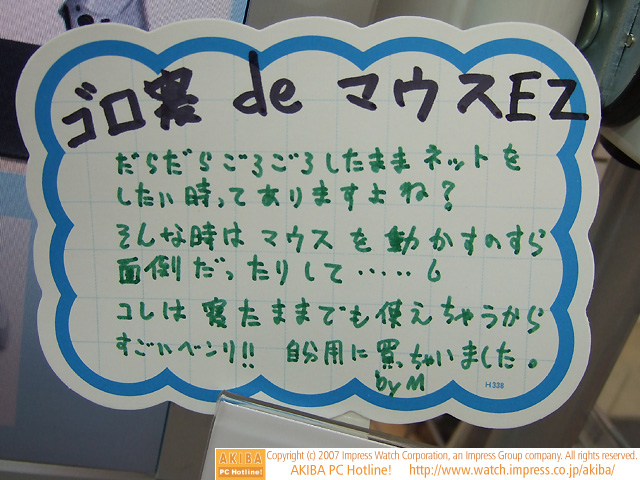 ゴロ寝 de マウスEZ
だらだらごろごろしたままネットを
したい時ってありますよね?
そんな時はマウスを動かすのすら
面倒だったりして……。
コレは寝たままでも使えちゃうから
すごいベンリ!! 自分用に買っちゃいました。
by M
H338
AKIBA
PC Hotline!
Copyright (c) 2007 Impress Watch Corporation, an Impress Group company. All rights reserved.
AKIBA PC Hotline! http://www.watch.impress.co.jp/akiba/